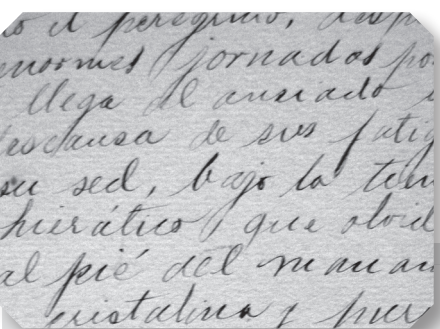 el peregrino,
enormes jornadas
llega al ansiado
descansa de sus fatig
su sed, bajo la
hierático, que olvid
al pié del manan
cristalina y pur